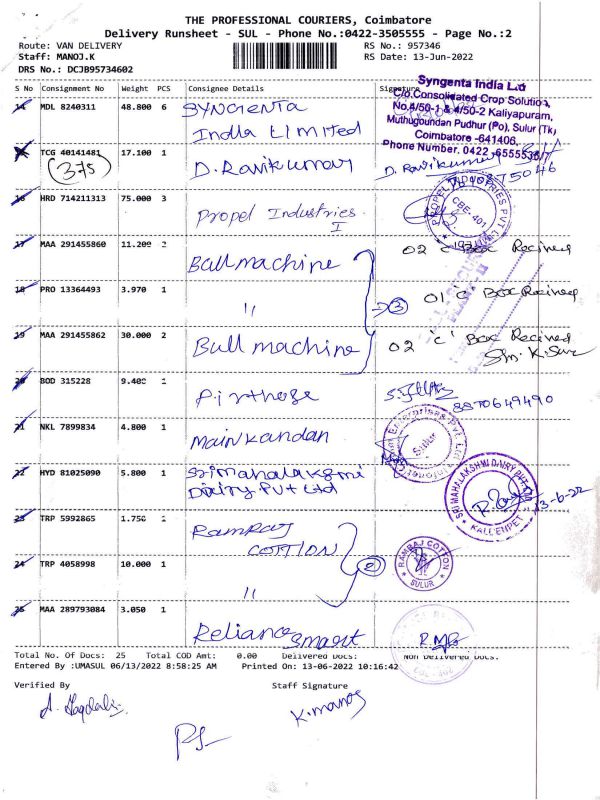 THE PROFESSIONAL COURIERS, Coimbatore
Delivery Runsheet - SUL - Phone No.:0422-3505555 - Page No.:2
Route: VAN DELIVERY
RS No.: 957346
Staff: MANOJ.K
RS Date: 13-Jun-2022
DRS No.: DCJB95734602
S No Consignment No Weight PCS Consignee Details Signature
Syngenta India Ltd
C/o.Consolidated Crop Solution,
No.4/50-1 & 4/50-2 Kaliyapuram,
Muthugoundan Pudhur (Po), Sulur (Tk)
Coimbatore -641406,
Phone Number. 0422 -6555536/7
14 MDL 8240311 48.800 6 SYNGENTA
India Limited
TCG 40141481 17.100 1 D. Ravikumar D. Ravikumar
(375)
16 HRD 714211313 75.000 3 Propel Industries
I
PROPEL INDUSTRIES PVT LTD
CBE-401
17 MAA 291455860 11.200 2 Bull machine 02 'c' Box Recined
18 PRO 13364493 3.970 1 " 3 01 'c' Box Recined
19 MAA 291455862 30.000 2 Bull machine 02 'c' Box Recined
20 BOD 315228 9.400 1 Pirthose
8870649490
21 NKL 7899834 4.800 1 Mainkandan
Enterprises Pvt. Ltd
Sulur
22 HYD 81025090 5.800 1 Srimahalakshmi
Dairy Pvt Ltd
SRI MAHALAKSHMI DAIRY PVT LTD
13-6-22
23 TRP 5992865 1.750 Ramraj
COTTION
RAMRAJ COTTON
SULUR
24 TRP 4058998 10.000 1 " 2
25 MAA 289793084 3.050 1 Reliance smart
Total No. Of Docs: 25 Total COD Amt: 0.00 Delivered Docs: Non Delivered Docs:
Entered By :UMASUL 06/13/2022 8:58:25 AM Printed On: 13-06-2022 10:16:42
Verified By Staff Signature
K.manoj